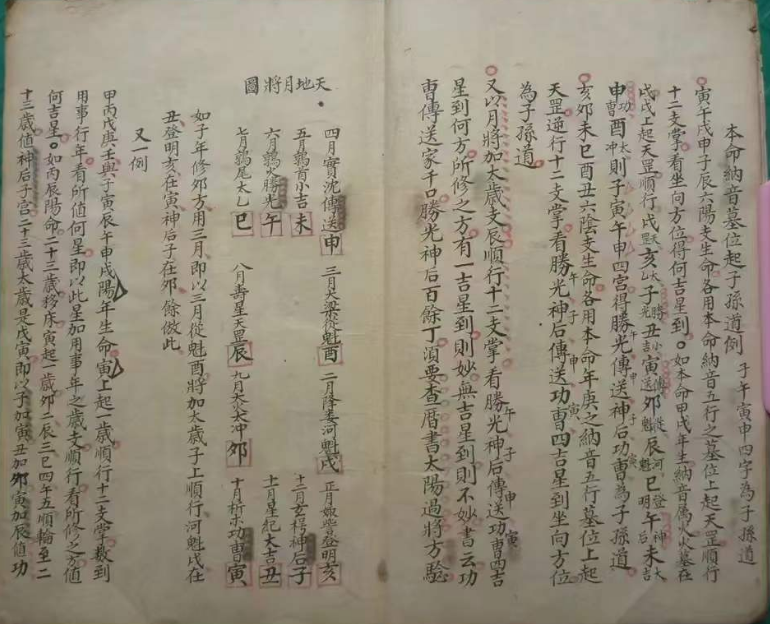 本命納音墓位起子孫道例 子午寅申四字為子孫道
寅午戌申子辰六陽支生命各用本命納音五行之墓位上起天罡順行
十二支掌看坐向方位得何吉星到。如本命甲戌年生納音属火火墓在
戌戌上起天罡順行戌亥太乙子勝光丑小吉寅傳送卯從魁辰河魁巳登明午神后未大吉
申功曹酉太冲則子寅午申四宮得勝光傳送神后功曹為子孫道
亥卯未巳酉丑六陰支生命各用本命年庚之納音五行墓位上起
天罡逆行十二支掌看勝光午神后子傳送申功曹寅四吉星到坐向方位
為子孫道
又以月將加太歲支辰順行十二支掌看勝光午神后子傳送申功曹寅四吉
星到何方所修之方有一吉星到則妙無吉星到則不妙書云功
曹傳送家千口勝光神后百餘丁須要查曆書太陽過將方驗
天地月將圖
四月實沈傳送申 三月大梁從魁酉 二月降婁河魁戌 正月娵訾登明亥
五月鶉首小吉未 十二月玄枵神后子
六月鶉火勝光午 十一月星紀大吉丑
七月鶉尾太乙巳 八月壽星天罡辰 九月大火太冲卯 十月析木功曹寅
如子年修卯方用三月即以三月從魁酉將加太歲子上順行河魁戌在
丑登明亥在寅神后子在卯餘倣此
又一例
甲丙戊庚壬與子寅辰午申戌陽年生命寅上起一歲順行十二支掌数到
用事行年看所值何星即以此星加用事年之歲支順行看所修之方值
何吉星。如丙辰陽命二十三歲移床寅起一歲卯二辰三巳四午五順輪至二
十三歲值神后子宮二十三歲太歲是戊寅即以子加寅丑加卯寅加辰值功